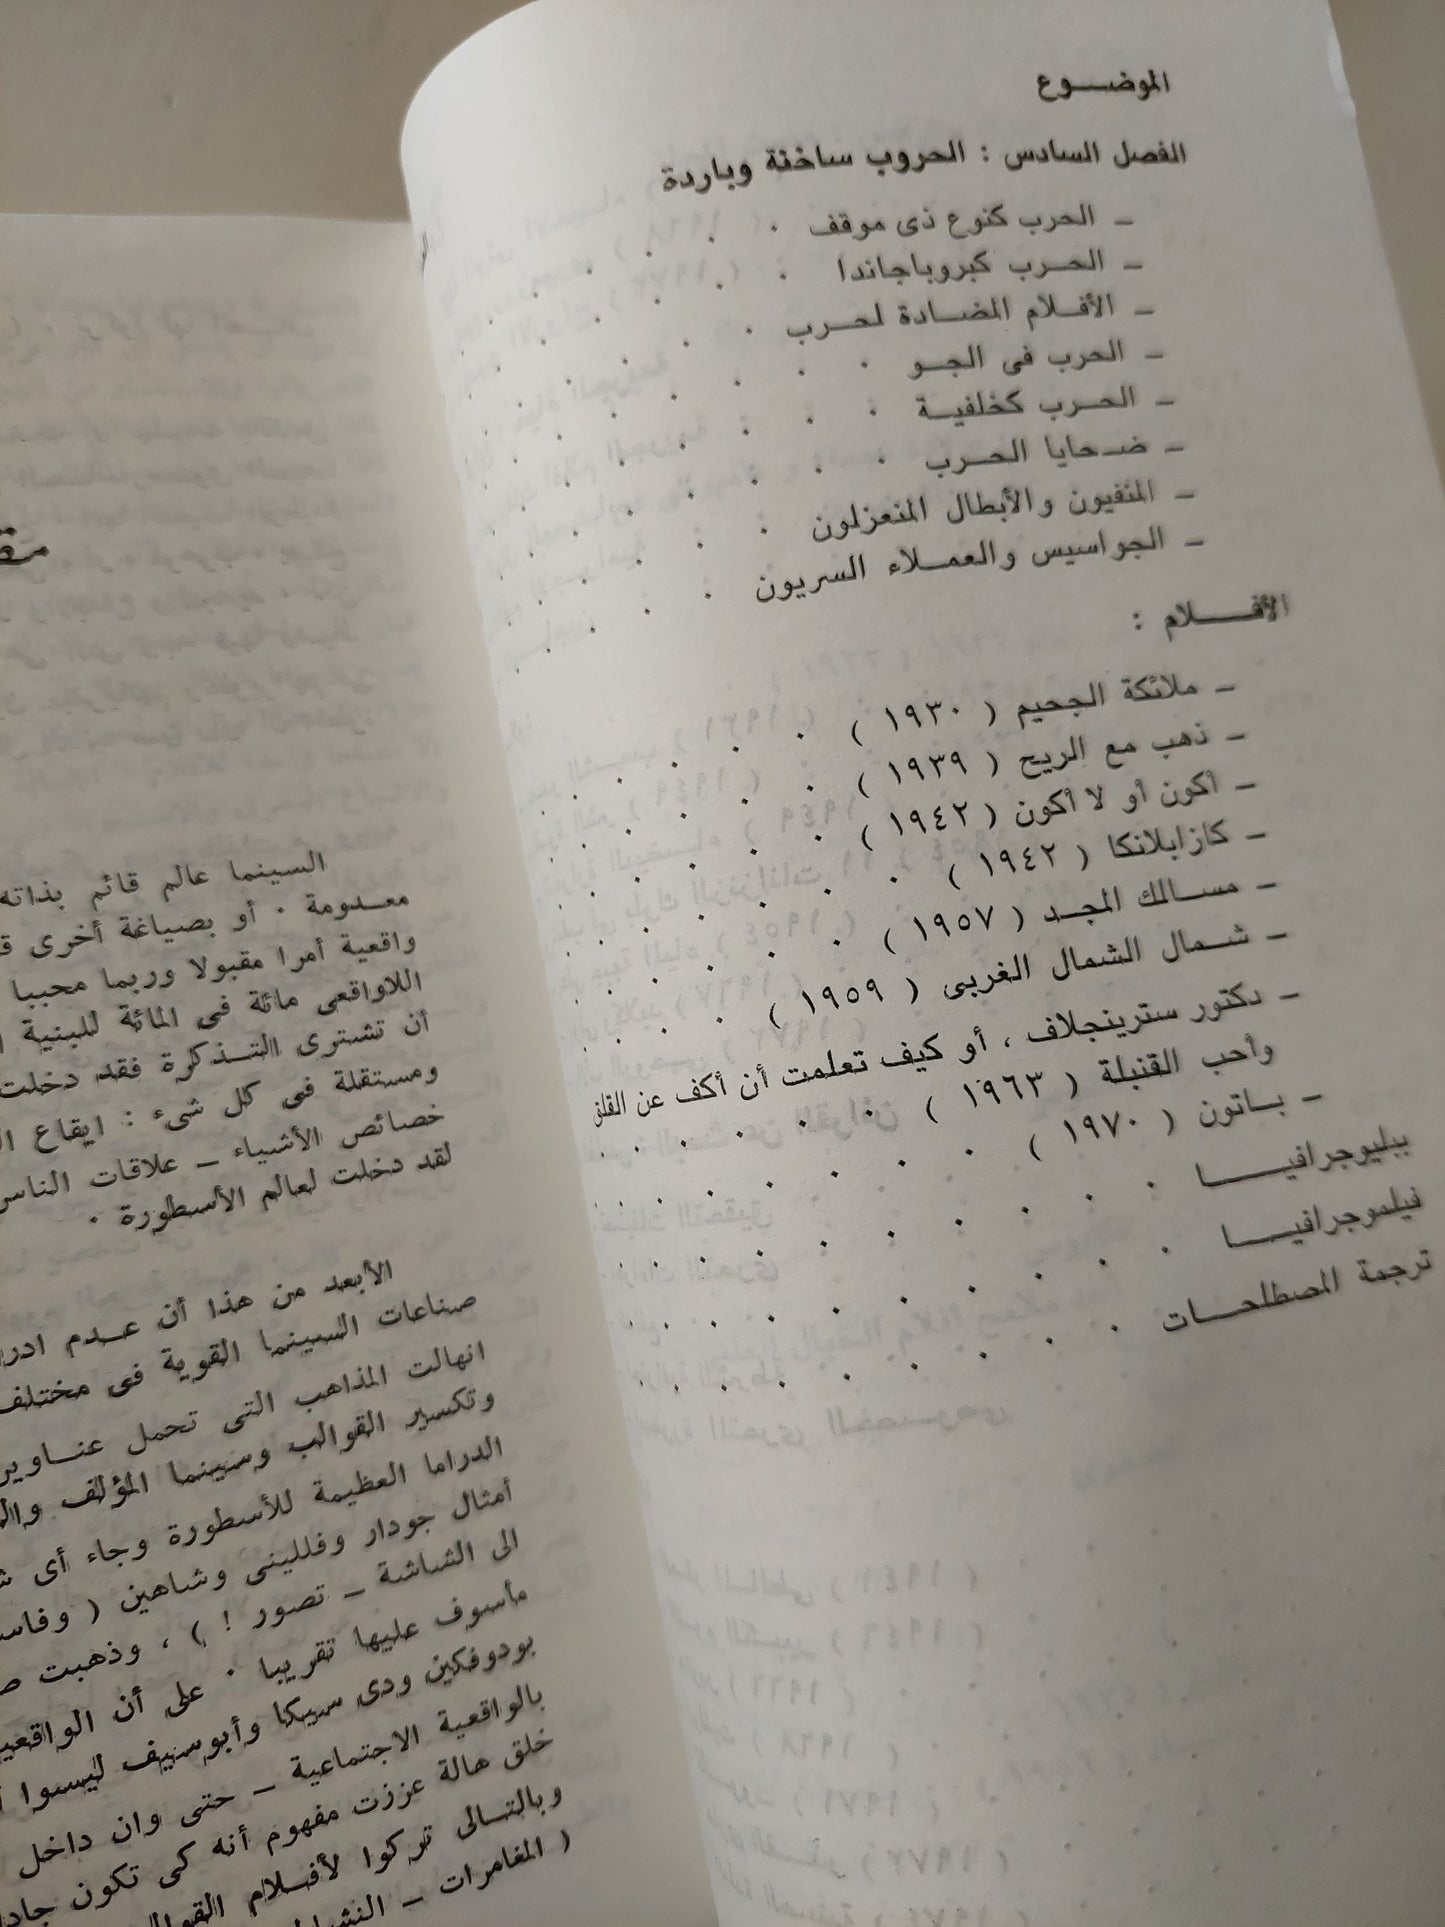 الموضـــوع
الفصل السادس : الحروب ساخنة وباردة
– الحرب كنوع ذى موقف
– الحـرب كبروباجاندا
– الأفـلام المضـادة لحـرب
– الحرب فى الجـو
– الحـرب كخلفيـة
– ضـحايا الحـرب
– المنفيون والأبطال المنعزلون
– الجواسيس والعمـلاء السريون
الأفــــلام :
– ملائكة الجحيم ( ١٩٣٠ )
– ذهب مع الريح ( ١٩٣٩ )
– أكون أو لا أكون ( ١٩٤٢ )
– كازابلانكا ( ١٩٤٢ )
– مسـالك المجـد ( ١٩٥٧ )
– شـمال الشمال الغربى ( ١٩٥٩ )
– دكتور سترينجلاف ، أو كيف تعلمت أن أكف عن القلق
وأحب القنبلة ( ١٩٦٣ )
– بـاتون ( ١٩٧٠ )
ببليوجرافيــــا
فيلموجرافيــــا
ترجمة المصطلحـــات
السينما عالم قائم بذاته
معـدومة . أو بصياغة أخرى
واقعية أمرا مقبولا وربما محببا
اللاواقعى مائة فى المائة للبنية
أن تشترى التـذكرة فقد دخلت
ومستقلة فى كل شىء : ايقاع
خصائص الأشياء – علاقات الناس
لقد دخلت لعالم الأسطورة .
الأبعد من هذا أن عـدم
صناعات السينما القوية فى مختلف
انهالت المذاهب التى تحمل
وتكسير القوالب وسينما المؤلف
الدراما العظيمة للأسطورة وجاء أى
أمثال جودار وفللينى وشاهين (
الى الشاشة – تصور ! ) ، وذهبت
مأسوف عليها تقريبا . على أن
بودوفكين ودى سيكا وأبو سيف ليسوا
بالواقعية الاجتماعية – حتى وان داخل
خلق هالة عززت مفهوم أنه كى تكون
وبالتـالى تركوا لأفـلام
( المغامرات –